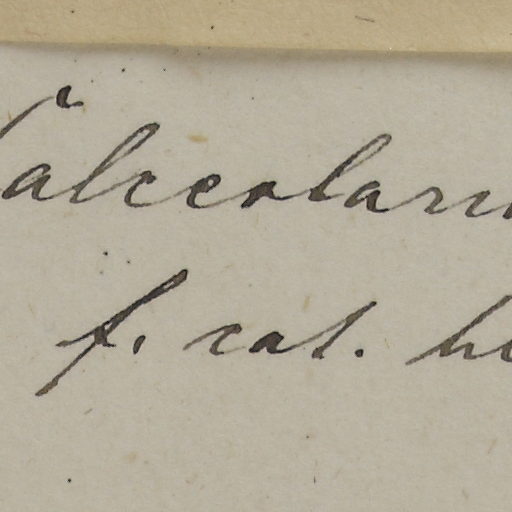 Calceolari
f. cal. h